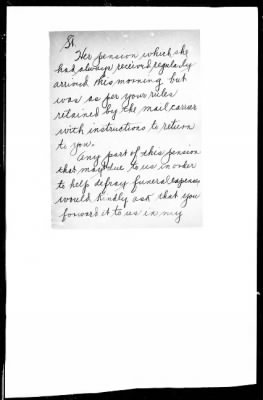 St.
Her pension which she
had always received regularly
arrived this morning but
was as per your rules
retained by the mail carrier
with instructions to return
to you.
Any part of this pension
that may due to us in order
to help defray funeral expenses
would kindly ask that you
forward it to us in my